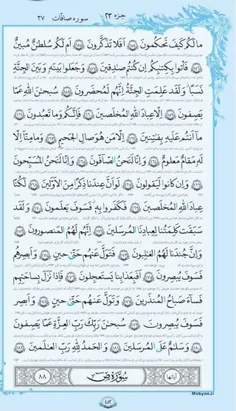 جزء ٢٣ سوره صافات ٣٧
مَا لَكُمْ كَيْفَ تَحْكُمُونَ ﴿١٥٤﴾ أَفَلَا تَذَكَّرُونَ ﴿١٥٥﴾ أَمْ لَكُمْ سُلْطَانٌ مُبِينٌ
﴿١٥٦﴾ فَأْتُوا بِكِتَابِكُمْ إِنْ كُنْتُمْ صَادِقِينَ ﴿١٥٧﴾ وَجَعَلُوا بَيْنَهُ وَبَيْنَ الْجِنَّةِ
نَسَبًا وَلَقَدْ عَلِمَتِ الْجِنَّةُ إِنَّهُمْ لَمُحْضَرُونَ ﴿١٥٨﴾ سُبْحَانَ اللَّهِ عَمَّا
يَصِفُونَ ﴿١٥٩﴾ إِلَّا عِبَادَ اللَّهِ الْمُخْلَصِينَ ﴿١٦٠﴾ فَإِنَّكُمْ وَمَا تَعْبُدُونَ ﴿١٦١﴾
مَا أَنْتُمْ عَلَيْهِ بِفَاتِنِينَ ﴿١٦٢﴾ إِلَّا مَنْ هُوَ صَالِ الْجَحِيمِ ﴿١٦٣﴾ وَمَا مِنَّا إِلَّا
لَهُ مَقَامٌ مَعْلُومٌ ﴿١٦٤﴾ وَإِنَّا لَنَحْنُ الصَّافُّونَ ﴿١٦٥﴾ وَإِنَّا لَنَحْنُ الْمُسَبِّحُونَ
﴿١٦٦﴾ وَإِنْ كَانُوا لَيَقُولُونَ ﴿١٦٧﴾ لَوْ أَنَّ عِنْدَنَا ذِكْرًا مِنَ الْأَوَّلِينَ ﴿١٦٨﴾ لَكُنَّا
عِبَادَ اللَّهِ الْمُخْلَصِينَ ﴿١٦٩﴾ فَكَفَرُوا بِهِ فَسَوْفَ يَعْلَمُونَ ﴿١٧٠﴾ وَلَقَدْ
سَبَقَتْ كَلِمَتُنَا لِعِبَادِنَا الْمُرْسَلِينَ ﴿١٧١﴾ إِنَّهُمْ لَهُمُ الْمَنْصُورُونَ ﴿١٧٢﴾
وَإِنَّ جُنْدَنَا لَهُمُ الْغَالِبُونَ ﴿١٧٣﴾ فَتَوَلَّ عَنْهُمْ حَتَّىٰ حِينٍ ﴿١٧٤﴾ وَأَبْصِرْهُمْ
فَسَوْفَ يُبْصِرُونَ ﴿١٧٥﴾ أَفَبِعَذَابِنَا يَسْتَعْجِلُونَ ﴿١٧٦﴾ فَإِذَا نَزَلَ بِسَاحَتِهِمْ
فَسَاءَ صَبَاحُ الْمُنْذَرِينَ ﴿١٧٧﴾ وَتَوَلَّ عَنْهُمْ حَتَّىٰ حِينٍ ﴿١٧٨﴾ وَأَبْصِرْ
فَسَوْفَ يُبْصِرُونَ ﴿١٧٩﴾ سُبْحَانَ رَبِّكَ رَبِّ الْعِزَّةِ عَمَّا يَصِفُونَ
﴿١٨٠﴾ وَسَلَامٌ عَلَى الْمُرْسَلِينَ ﴿١٨١﴾ وَالْحَمْدُ لِلَّهِ رَبِّ الْعَالَمِينَ ﴿١٨٢﴾
آیاتها سُورَةُ صٓ ٨٨
Mobyen.ir